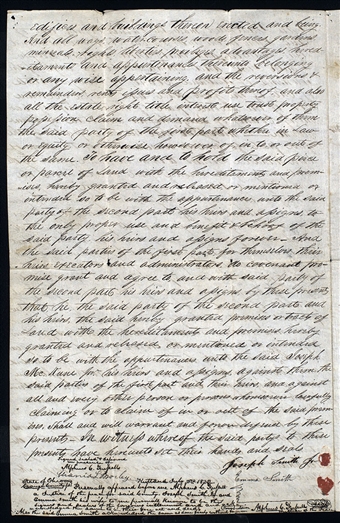 Edifices and buildings thereon erected and being
And all ways waters courses woods fences gardens
minerals rights liberties privileges advantages hered-
itaments and appurtenances thereunto belonging
or in any wise appertaining and the reversions &
remainders rents issues and profits thereof, and also
all the estate right title interest use trust property
possession claim and demand whatsoever of them
the said party of the first part whether in law
or equity or otherwise howsoever of in to or out of
the same. To have and to hold the said piece
or parcel of land with the hereditaments and prem-
ises, hereby granted and released or mentioned or
intended so to be with the appurtenances unto the said
party of the second part his heirs and assigns to
the only proper use and benefit & behoof of the
said party his heirs and assigns forever— And
the said parties of the first part for themselves their
heirs executors and administrators, do covenant pro-
mise grant and agree to, and with said party of
the second part his heirs and assigns by these presents
that he the said party of the second part and
his heirs the said hereby granted premises or tract of
land with the hereditaments and premises hereby
granted and released, or mentioned or intended
so to be with the appurtenances unto the said Joseph
Mc Kune his heirs and assigns, against them the
said parties of the first part and their heirs and against
all and every other person or persons whomsoever lawfully
claiming or to claim of in or out of the said prem-
ises. Shall and will warrant and forever defend by these
presents. In witness whereof the said party to these
presents have hereunto set their hands and seals
Joseph Smith Jr
Emma Smith